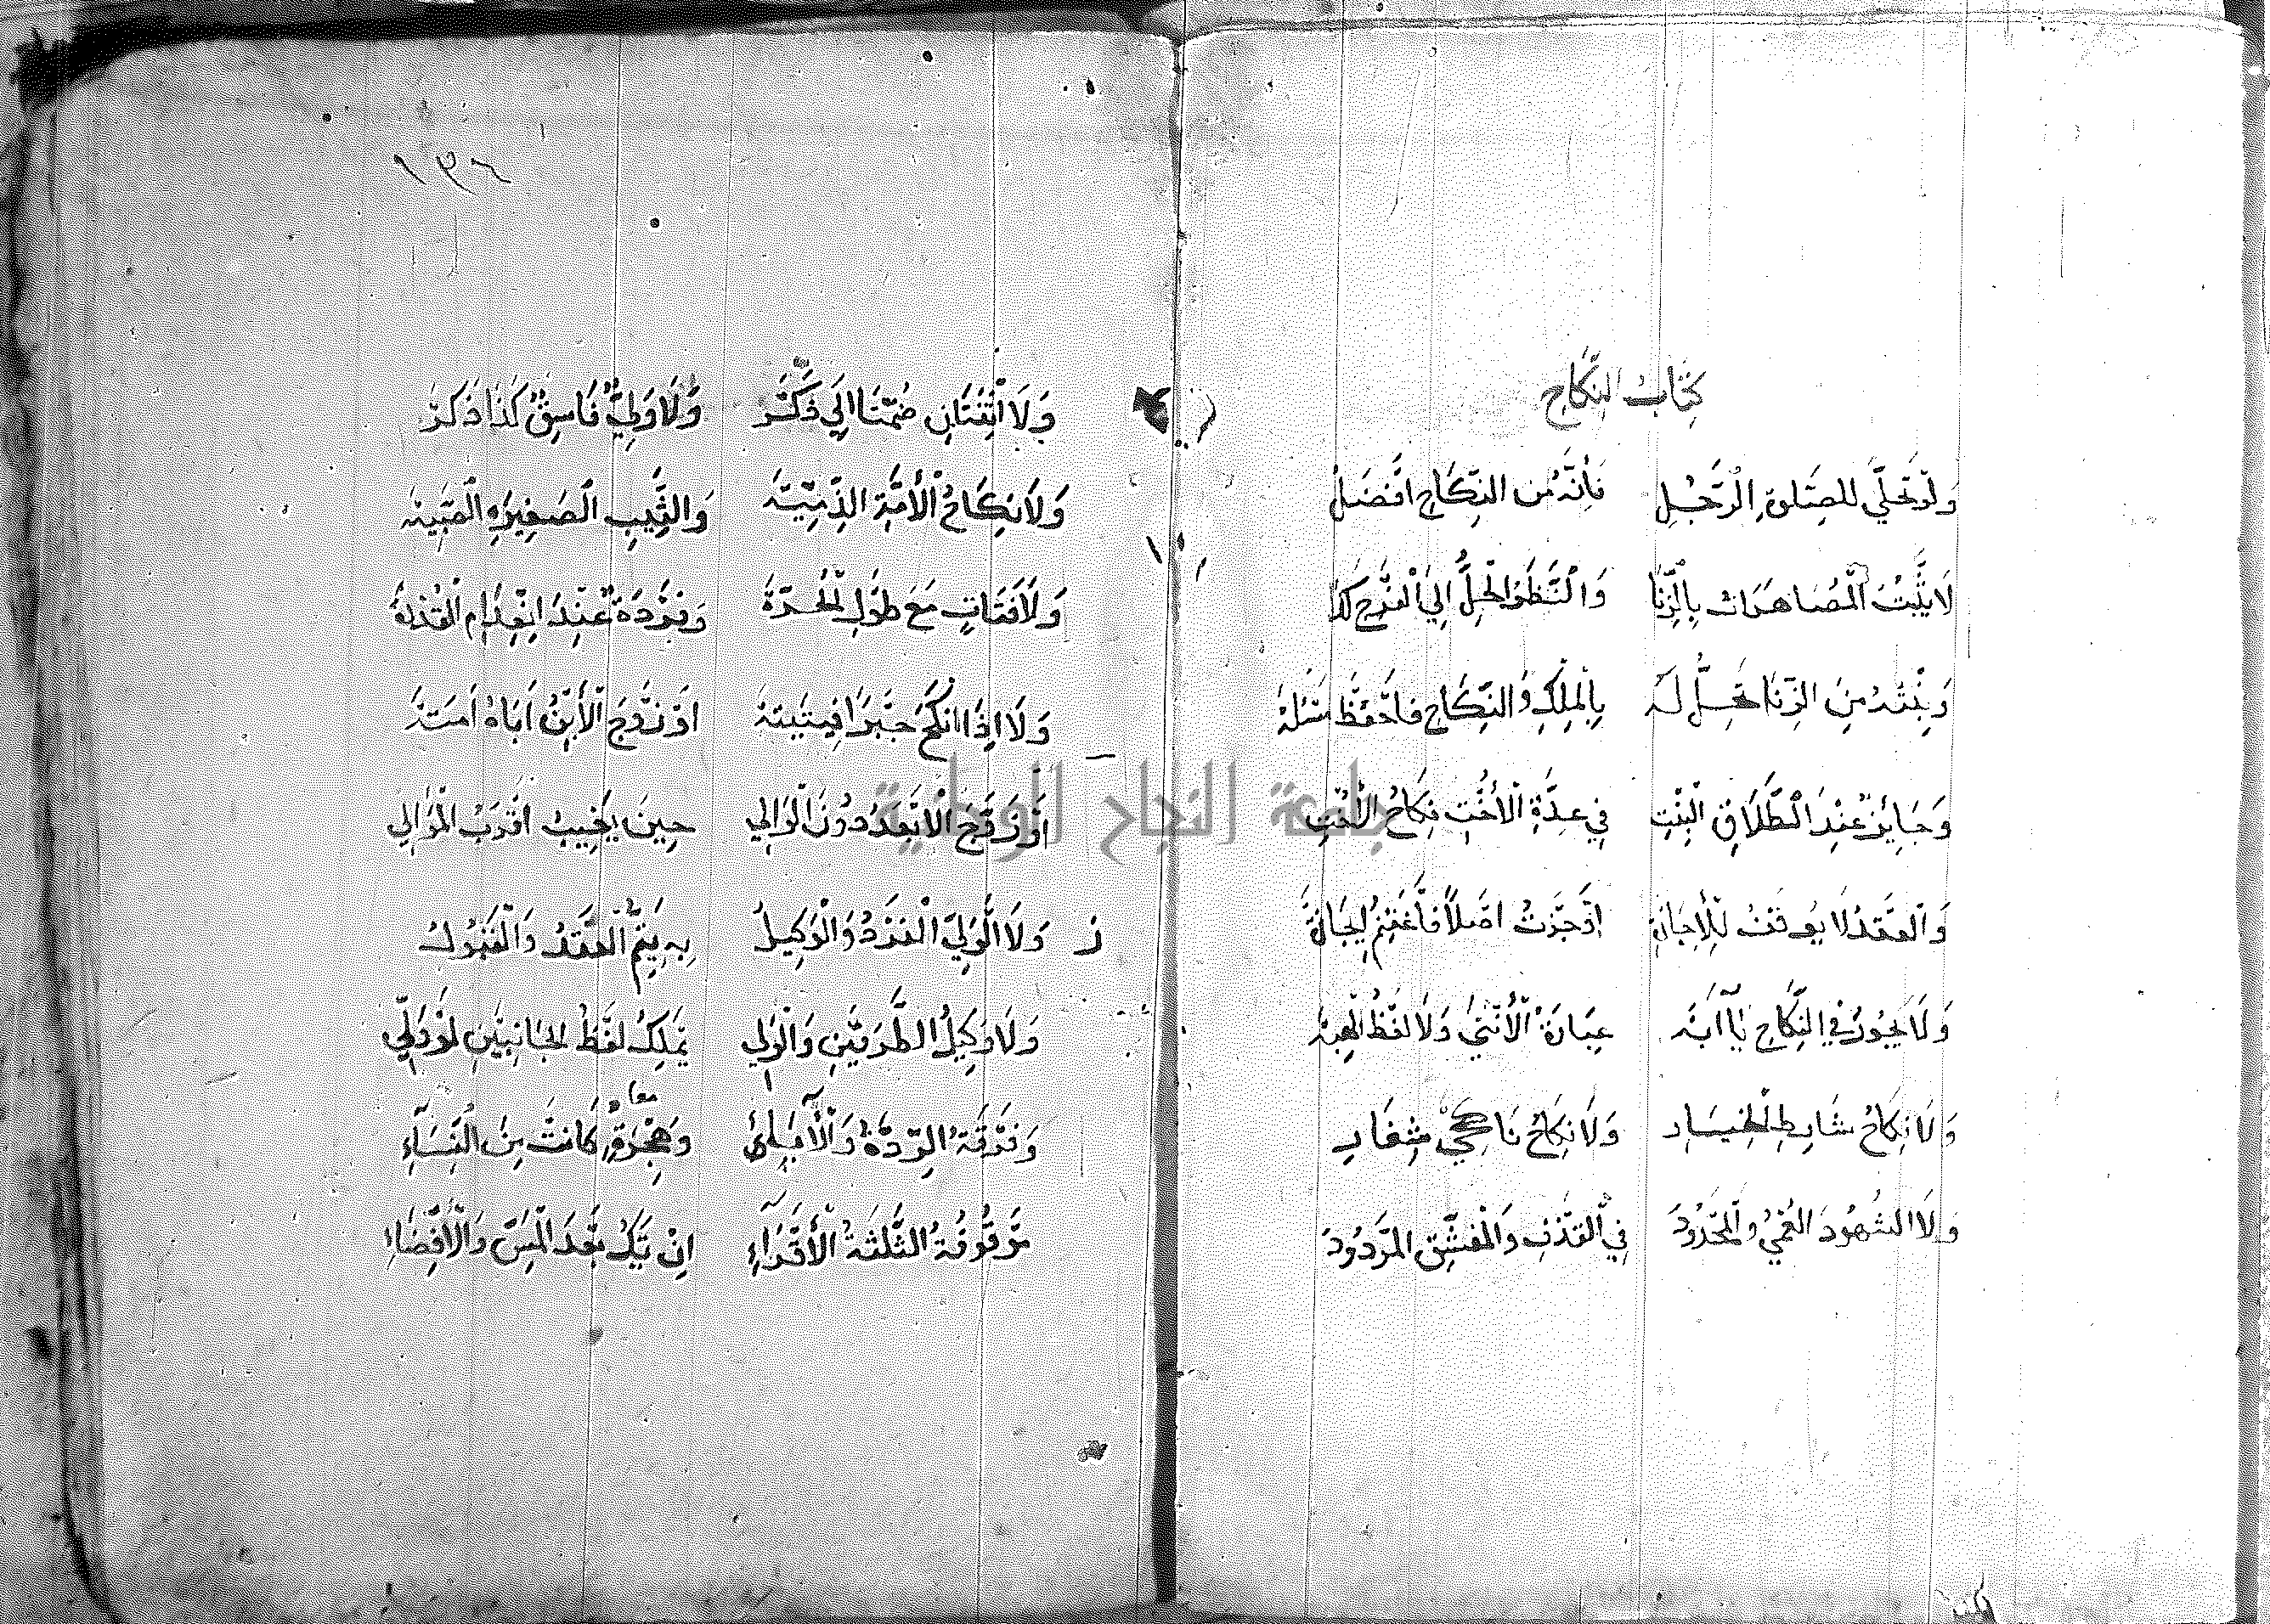 كِتَابُ النِّكَاحِ
وَلَوْ تَخَلَّى للصَّلوةِ الرَّجُلِ فَإنَّهُ مِن النِّكَاحِ اَفْضَلُ
لَا يَثْبُتُ الْمُصَاهَرَاتُ بِالزِّنَا وَالنَّظَرُ الْحِلُّ اِلَى الْفَرْجِ كَذَا
وَبِنْتُهُ مِنَ الزِّنَا تَحِلُّ لَهُ بِالْمِلْكِ وَالنِّكَاحِ فَاحْفَظْ
وَجَايِزٌ عِنْدَ الطَّلَاقِ الْبَتِّ فِي عِدَّةِ الْأُخْتِ نِكَاحُ الْأُخْتِ
وَالْعَقْدُ لَا يُوقَفُ لِلْإِجَازَةِ
وَلَا يَجُوزُ فِي النِّكَاحِ عِبَارَةُ الْأُنْثَى وَلَا لَفْظُ الْهِبَه
وَلَا نِكَاحُ شَارِطِ الْخِيَارِ وَلَا نِكَاحُ نَاكِحَيْ شِغَارِ
وَلَا الشُهُودَ الْعُمْيُ وَالْمَحْدُودَ فِي الْقَذْفِ وَالْمُفَسَّقِ الْمَرْدُودَ
١٣٤
وَلَا انْثَتَانِ ضُمَّتَا اِلَى ذَكَرْ وَلَا وَلِيٌّ فَاسِقٌ كَذَا ذَكَرْ
وَلَا نِكَاحُ الْأَمَةِ الذِّمِّيَّه وَالثَّيِّبِ الصَغِيرَةِ الصَّبِيَّه
وَلَا فَتَاةٍ مَعَ طَوْلِ الْحُرَّةِ وَفَرْدَةٌ عِنْدَ انْعِدَامِ الْقُدْرَةِ
وَلَا اِذَا انْكَحَ جَبْرًا اَوْ زَوَّجَ الْأِبْنُ اَبَاهُ اَمَتَهْ
اَوْ زَوَّجَ الْاَبْعَدُ دُونَ الْوَالِي حِينَ يَغِيبُ اَقْرَبُ الْمَوَالِي
ز وَلَا الْوَلِيُّ الْفَرْدُ وَالْوَكِيلُ بِهِ يَتِمُّ الْعَقْدُ وَالْقَبُولُ
وَلَا وَكِيلُ الطَّرَفَيْنِ وَالْوَلِي يَمْلِكُ لَفْظَ الْجَانِبَيْنِ
وَفُرْقَةُ الرِّدَّةِ وَالْأِبَاءِ وَهِجْرَةٍ كَانَتْ مِنَ النِّسَاءِ
معا
مَوْقُوفَةُ الثَّلَثَةُ الْأَقْرَاءِ اِنْ يَكُ بَعْدَ الْمَسِّ وَالْأِفْضَاءِ
جامعة النجاح الوطنية